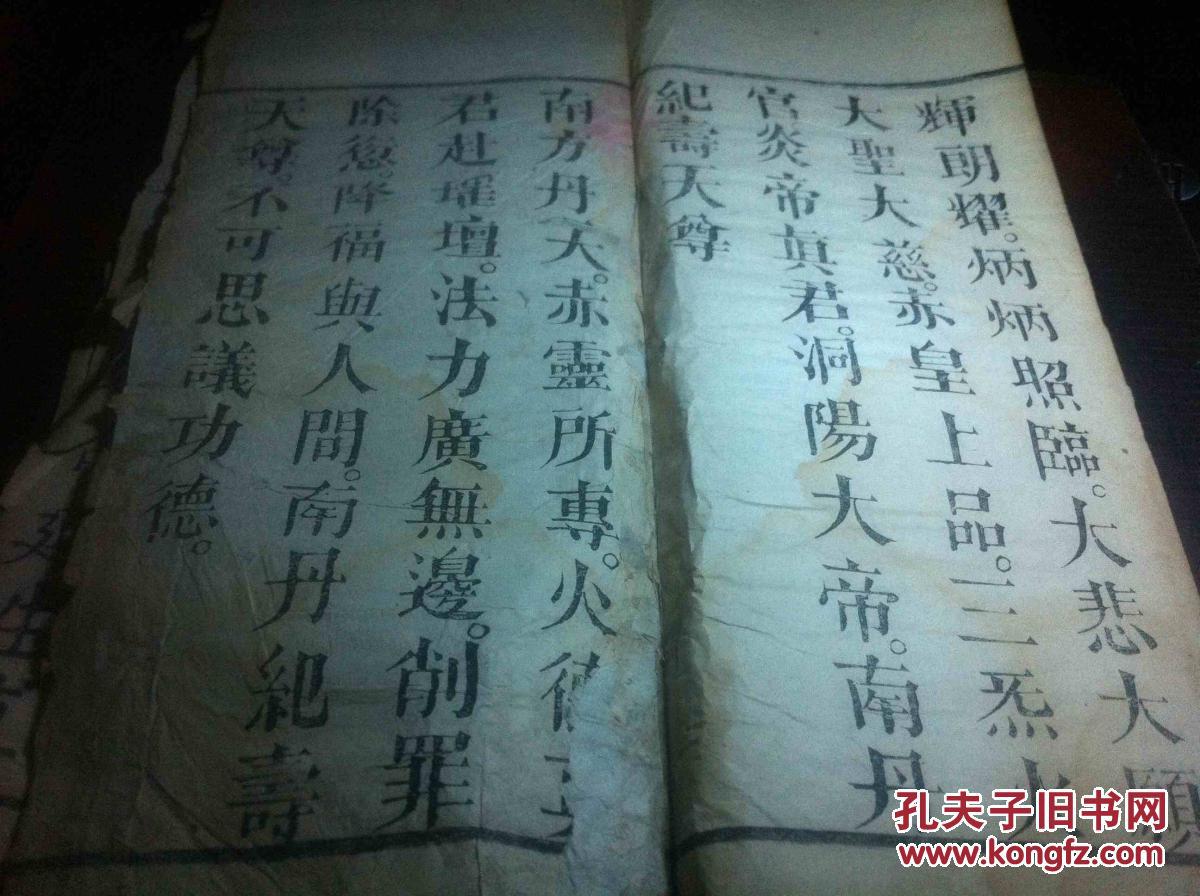 輝朗耀。炳炳照臨。大悲大願
大聖大慈。赤皇上品。三炁火
官炎帝真君。洞陽大帝。南丹
紀壽天尊
南方丹天。赤靈所專。火德真
君赴瑤壇。法力廣無邊。削罪
除愆。降福與人間。南丹紀壽
天尊。不可思議功德。
孔夫子旧书网
www.kongfz.com